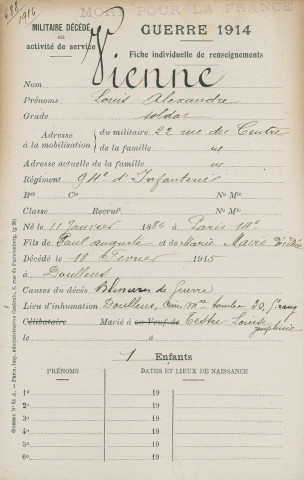 MORT POUR LA FRANCE
1916
MILITAIRE DÉCÉDÉ
en
activité de service
GUERRE 1914
Fiche individuelle de renseignements
Nom Vienne
Prénoms Louis Alexandre
Grade soldat
Adresse à la mobilisation
du militaire 22 rue du Centre
de la famille id
Adresse actuelle de la famille id
Régiment 94e d'Infanterie
Bon Cie No Mle
Classe Recrutt No Mle
Né le 11 Janvier 1886 à Paris 14e
Fils de Paul auguste et de Marie
Décédé le 18 Février 1915
à Doullens
Causes du décès Blessures de Guerre
Lieu d'inhumation Doullens, Cim. tombe 30,
Célibataire Marié à ou Veuf de Testu Louise
Joséphine
le à
1 Enfants
PRÉNOMS DATES ET LIEUX DE NAISSANCE
1o 19
2o 19
3o 19
4o 19
5o 19
6o 19